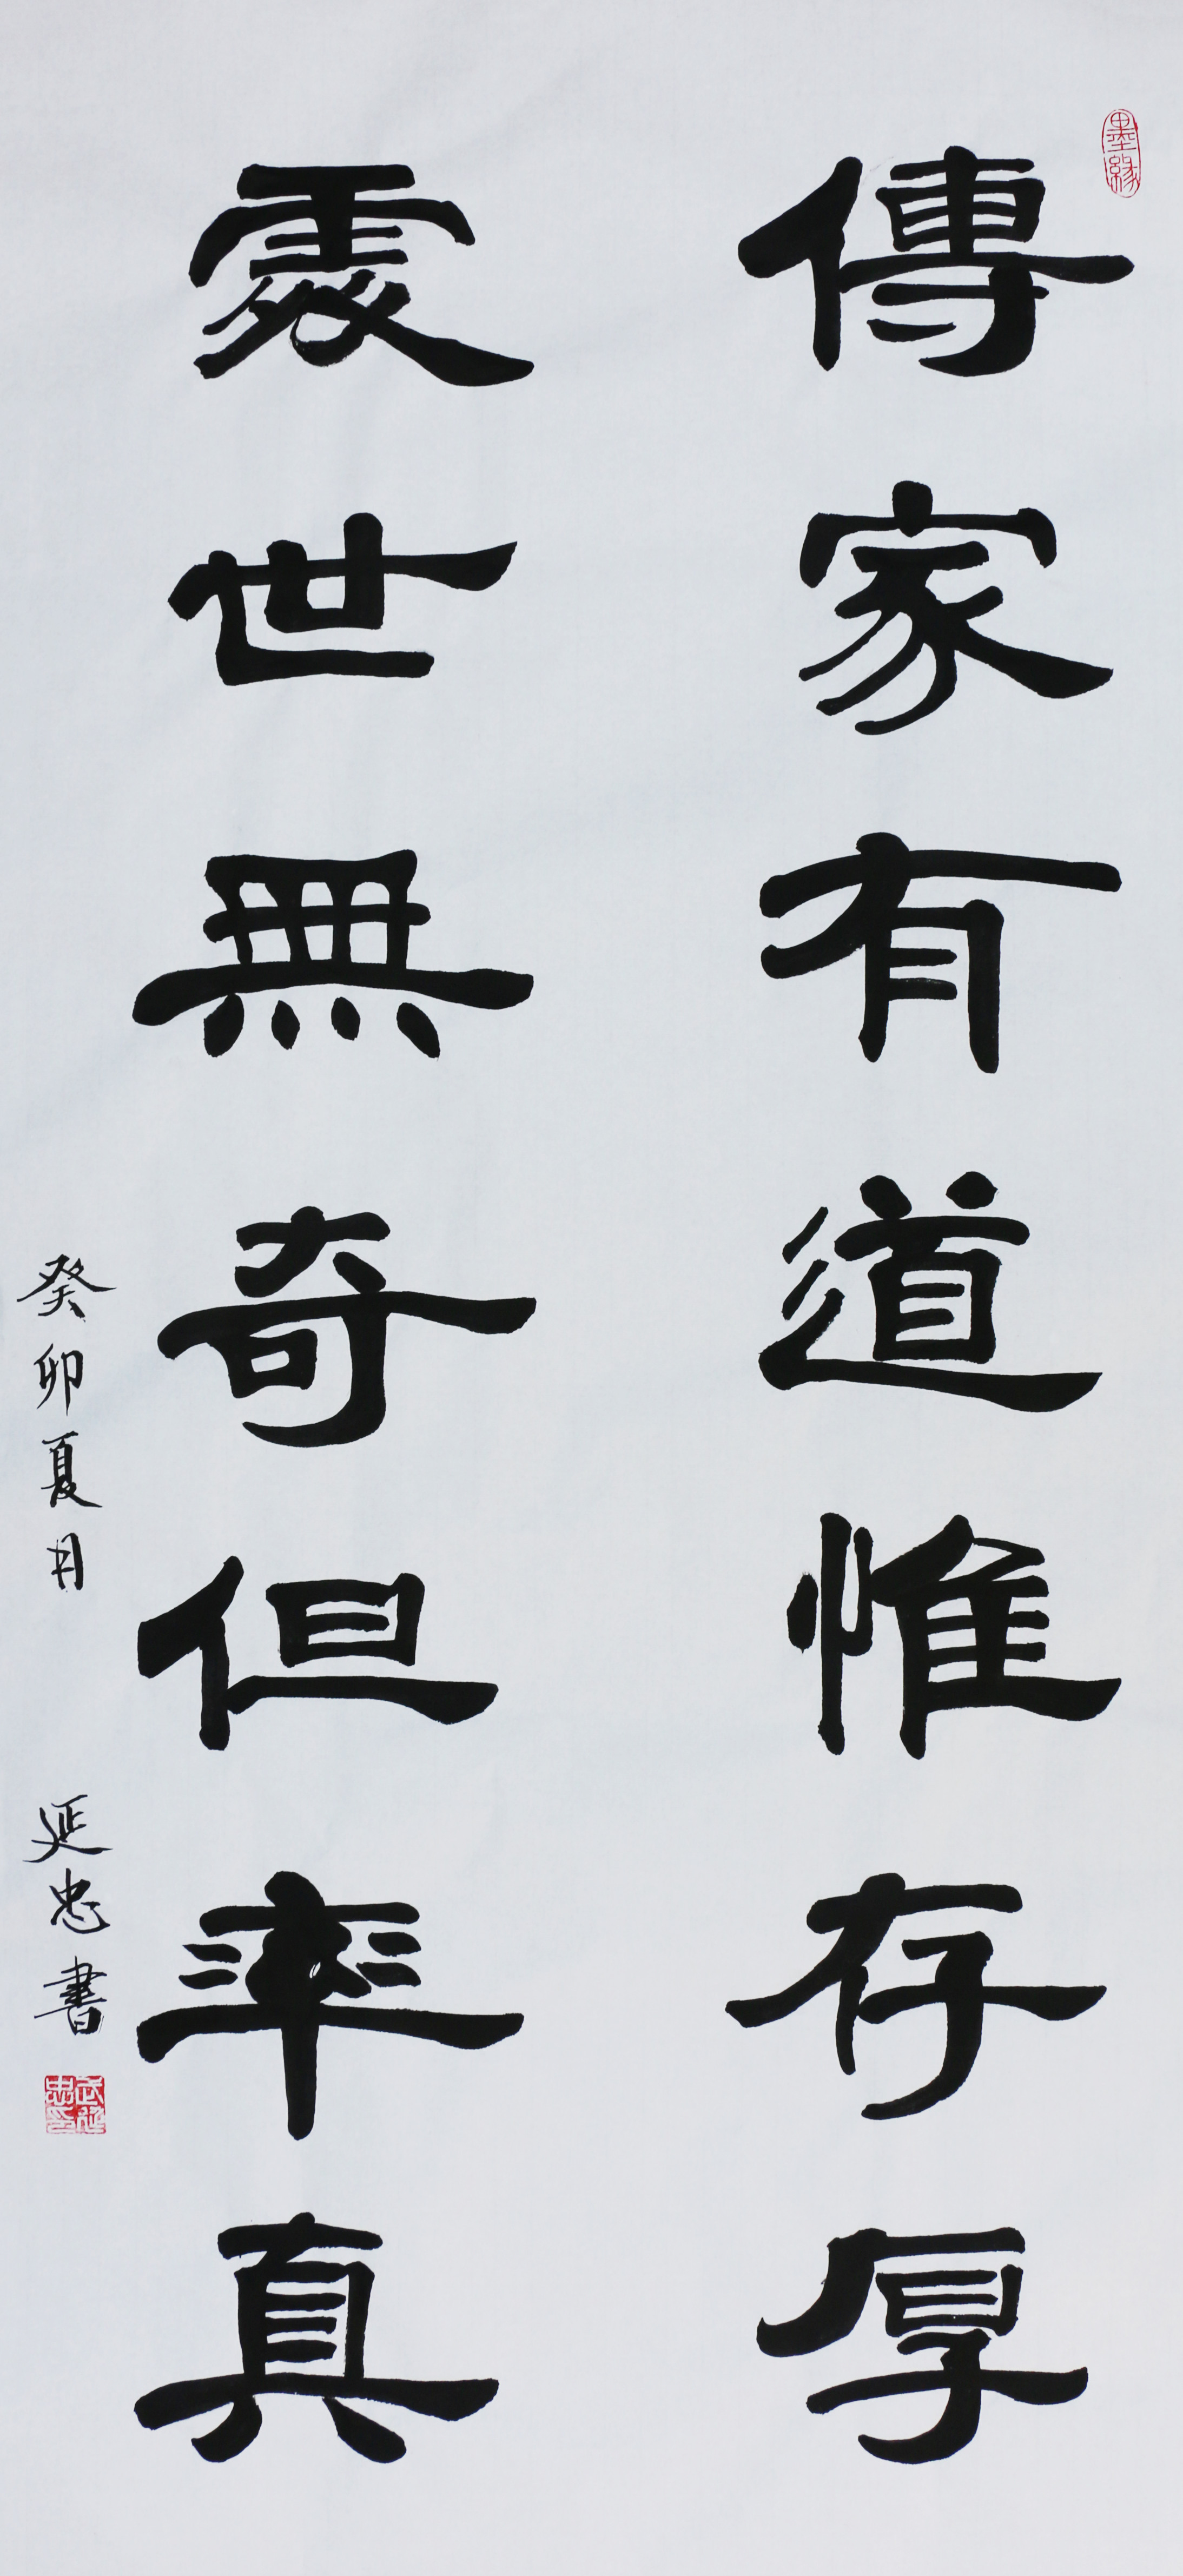 墨緣
傳家有道惟存厚
處世無奇但率真
癸卯夏月 延忠書
武延忠印